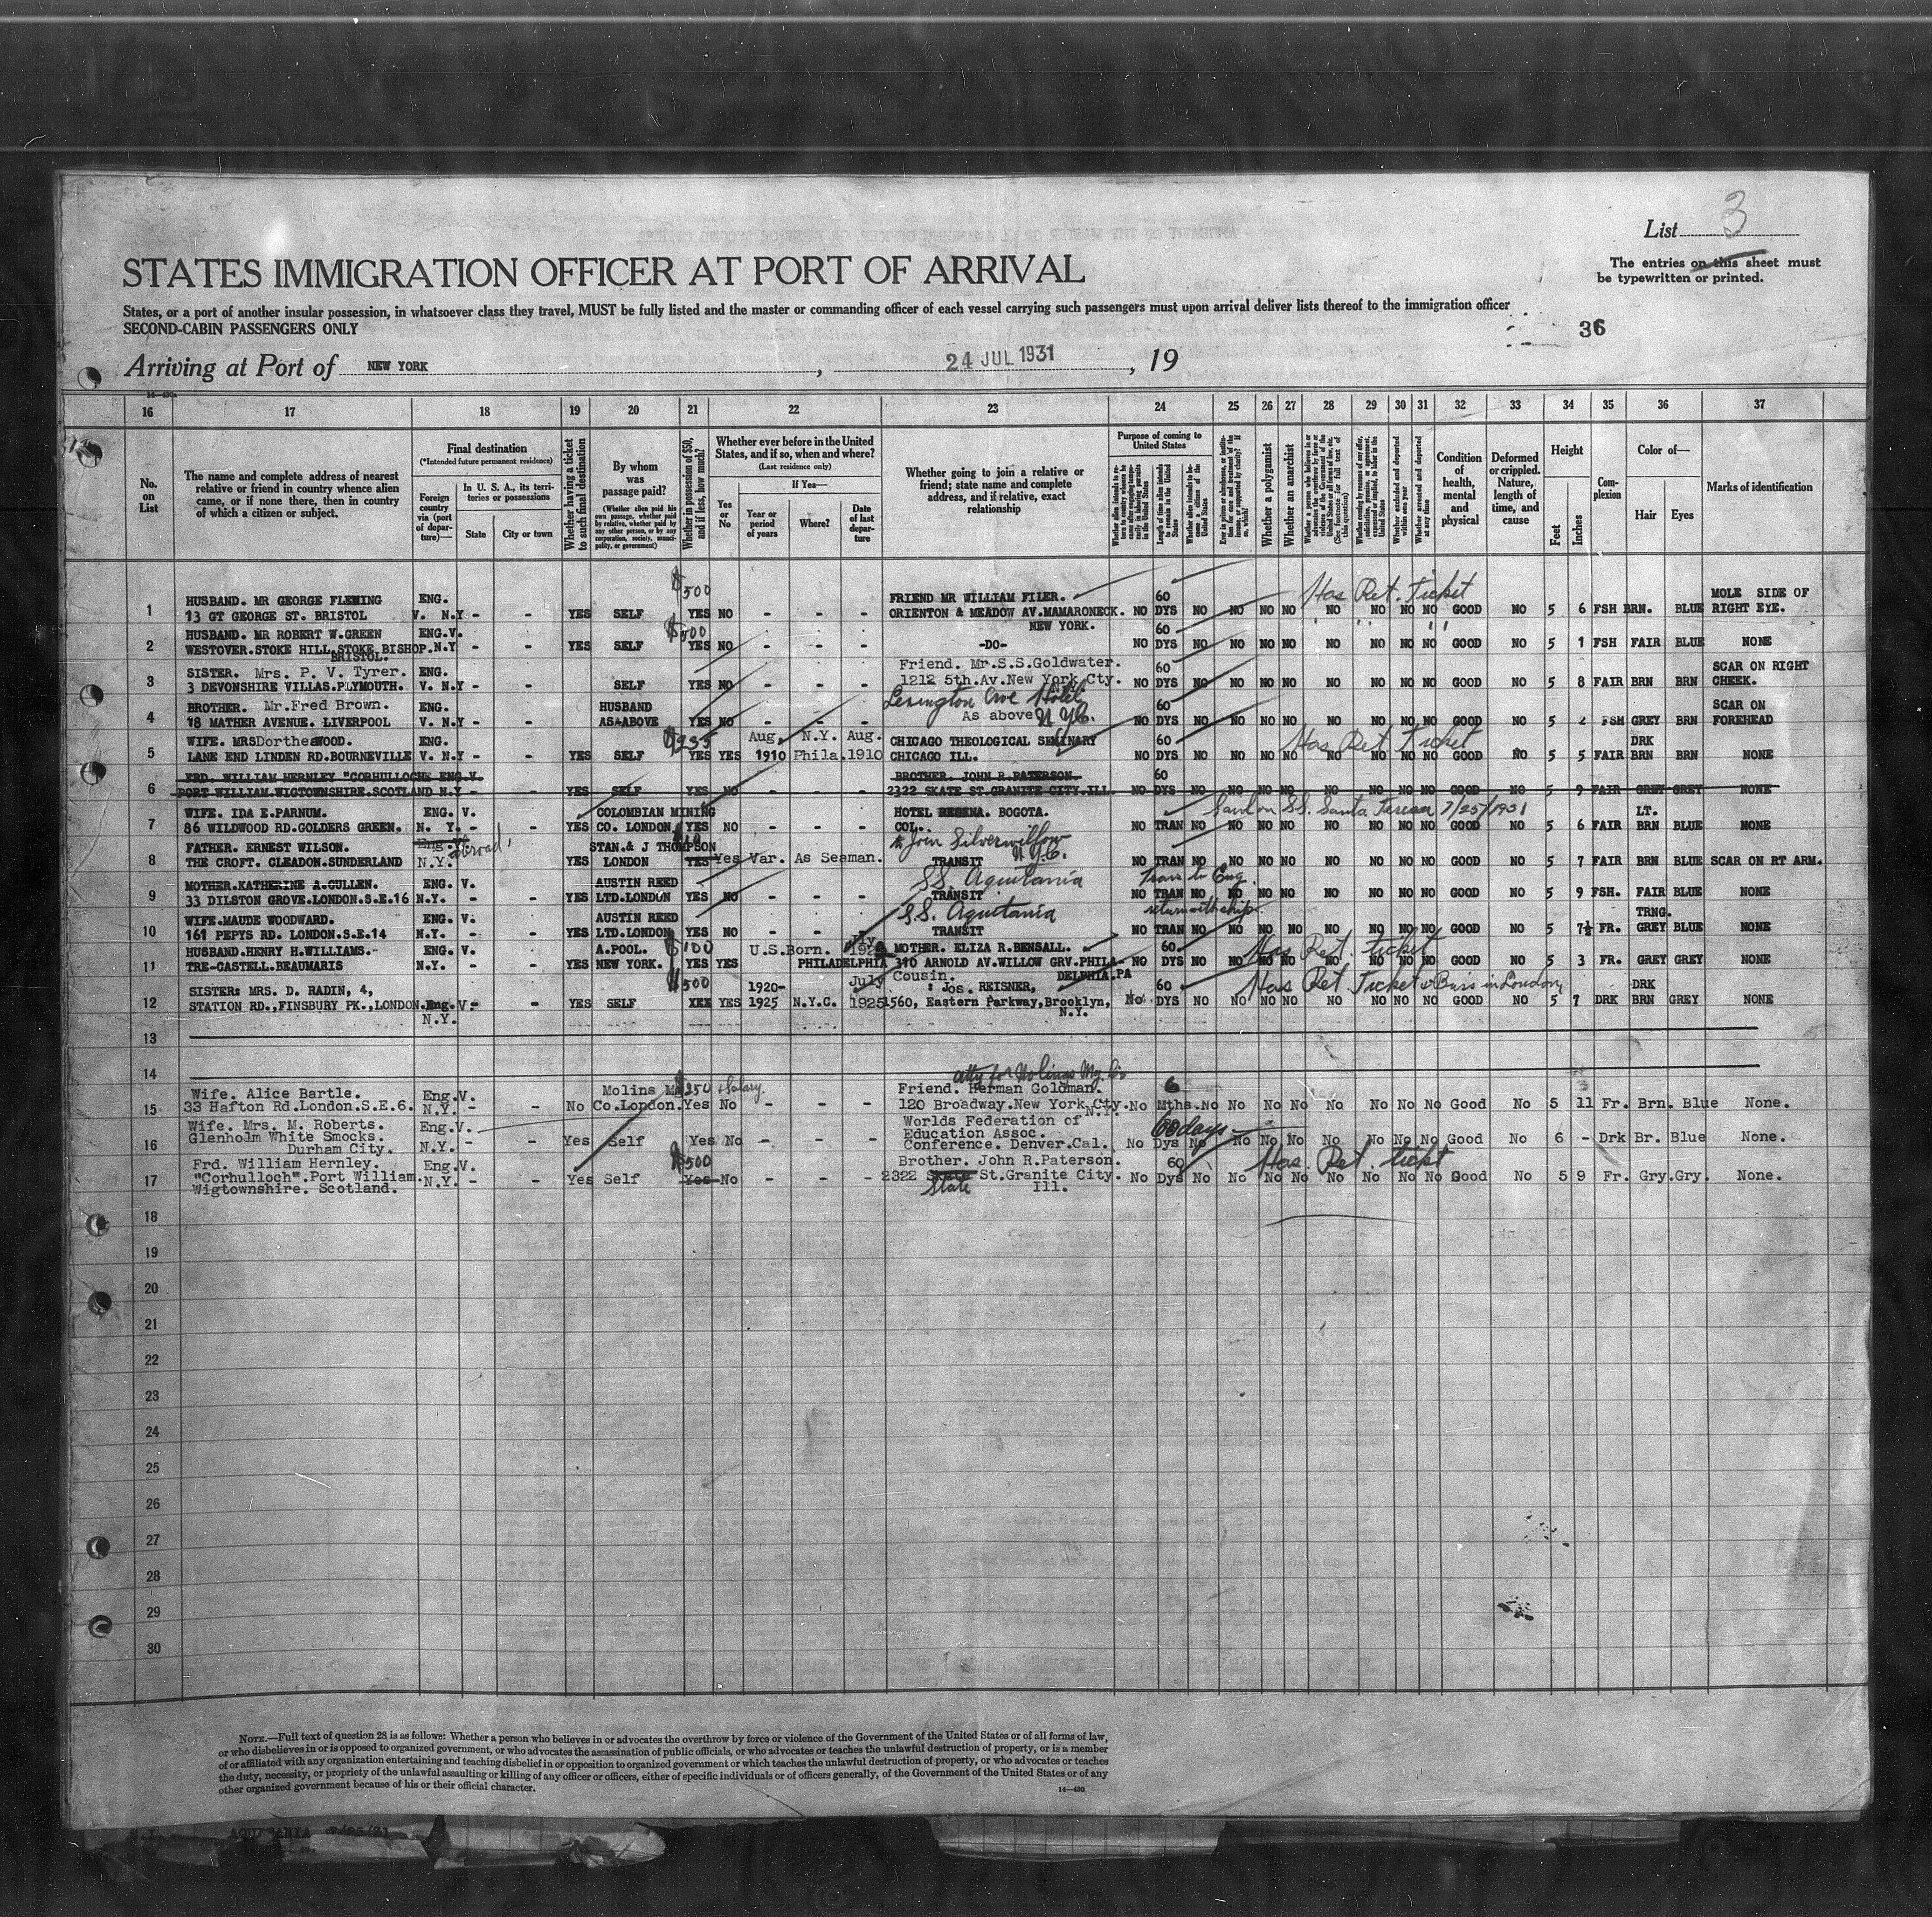 List 3
The entries on this sheet must
be typewritten or printed.
STATES IMMIGRATION OFFICER AT PORT OF ARRIVAL
States, or a port of another insular possession, in whatsoever class they travel, MUST be fully listed and the master or commanding officer of each vessel carrying such passengers must upon arrival deliver lists thereof to the immigration officer
SECOND-CABIN PASSENGERS ONLY
36
Arriving at Port of NEW YORK , 24 JUL 1931 , 19
16 17 18 19 20 21 22 23 24 25 26 27 28 29 30 31 32 33 34 35 36 37
No. on List
The name and complete address of nearest
relative or friend in country whence alien
came, or if none there, then in country
of which a citizen or subject.
Final destination
(*Intended future permanent residence)
Foreign country via (port of departure)—
In U. S. A., its territories or possessions
State
City or town
Whether having a ticket to such final destination
By whom was passage paid?
(Whether alien paid his own passage, whether paid by relative, whether paid by any other person, or by any corporation, society, municipality, or government)
Whether in possession of $50, and if less, how much?
Whether ever before in the United States, and if so, when and where?
(Last residence only)
Yes or No
If Yes—
Year or period of years
Where?
Date of last departure
Whether going to join a relative or
friend; state name and complete
address, and if relative, exact
relationship
Purpose of coming to United States
Length of time alien intends to remain in the United States
Whether a polygamist
Whether an anarchist
Condition of health, mental and physical
Deformed or crippled. Nature, length of time, and cause
Height
Feet
Inches
Complexion
Color of—
Hair
Eyes
Marks of identification
1 HUSBAND. MR GEORGE FLEMING ENG. $500 FRIEND MR WILLIAM FILER. 60 Has Ret. Ticket MOLE SIDE OF
13 GT GEORGE ST. BRISTOL V. N.Y - - YES SELF YES NO - - - ORIENTON & MEADOW AV.MAMARONECK. NO DYS NO NO NO NO NO NO NO NO GOOD NO 5 6 FSH BRN. BLUE RIGHT EYE.
NEW YORK.
2 HUSBAND. MR ROBERT W.GREEN ENG.V. $500 60
WESTOVER.STOKE HILL.STOKE BISHOP.N.Y - - YES SELF YES NO - - - -DO- NO DYS NO NO NO NO NO NO NO NO GOOD NO 5 1 FSH FAIR BLUE NONE
BRISTOL.
3 SISTER. Mrs. P. V. Tyrer. ENG. Friend. Mr.S.S.Goldwater. 60 SCAR ON RIGHT
3 DEVONSHIRE VILLAS.PLYMOUTH. V. N.Y - - SELF YES NO - - - 1212 5th.Av.New York Cty. NO DYS NO NO NO NO NO NO NO NO GOOD NO 5 8 FAIR BRN BRN CHEEK.
Lexington Ave Hotel
4 BROTHER. Mr.Fred Brown. ENG. HUSBAND 60 SCAR ON
18 MATHER AVENUE. LIVERPOOL V. N.Y - - AS ABOVE YES NO - - - As above N.Y.C. NO DYS NO NO NO NO NO NO NO NO GOOD NO 5 2 FSH GREY BRN FOREHEAD
5 WIFE. MRS Dorthea WOOD. ENG. $235 Aug. N.Y. Aug. CHICAGO THEOLOGICAL SEMINARY 60 Has Ret Ticket DRK
LANE END LINDEN RD.BOURNEVILLE V. N.Y - - YES SELF YES YES 1910 Phila. 1910 CHICAGO ILL. NO DYS NO NO NO NO NO NO NO NO GOOD NO 5 5 FAIR BRN BRN NONE
6 FRD. WILLIAM HERNLEY "CORHULLOCH ENG.V. BROTHER. JOHN R.PATERSON. 60
PORT WILLIAM.WIGTOWNSHIRE.SCOTLAND N.Y - - YES SELF YES NO - - - 2322 SKATE ST.GRANITE CITY.ILL. NO DYS NO NO NO NO NO NO NO NO GOOD NO 5 9 FAIR GREY GREY NONE
7 WIFE. IDA E.PARNUM. ENG. V. COLOMBIAN MINING HOTEL REGINA. BOGOTA. Sailed on SS. Santa Teresa 7/25/1931 LT.
86 WILDWOOD RD.GOLDERS GREEN. N. Y. - - YES CO. LONDON YES NO - - - COL. NO TRAN NO NO NO NO NO NO NO NO GOOD NO 5 6 FAIR BRN BLUE NONE
8 FATHER. ERNEST WILSON. Eng.V. abroad STAN.& J THOMPSON $10 to Join Silverwillow
THE CROFT. CLEADON.SUNDERLAND N.Y. - YES LONDON YES Yes Var. As Seaman. TRANSIT N.Y.C. NO TRAN NO NO NO NO NO NO NO NO GOOD NO 5 7 FAIR BRN BLUE SCAR ON RT ARM.
9 MOTHER.KATHERINE A.CULLEN. ENG. V. AUSTIN REED SS. Aquitania Trans to Eng
33 DILSTON GROVE.LONDON.S.E.16 N.Y. - - YES LTD.LONDON YES NO - - - TRANSIT NO TRAN NO NO NO NO NO NO NO NO GOOD NO 5 9 FSH. FAIR BLUE NONE
10 WIFE.MAUDE WOODWARD. ENG. V. AUSTIN REED S.S. Aquitania return with ship TRNG.
161 PEPYS RD. LONDON.S.E.14 N.Y. - - YES LTD.LONDON YES NO - - - TRANSIT NO TRAN NO NO NO NO NO NO NO NO GOOD NO 5 7½ FR. GREY BLUE NONE
11 HUSBAND.HENRY H.WILLIAMS. ENG. V. A.POOL. $100 U.S.Born. MOTHER. ELIZA R.BENSALL. 60 Has Ret. ticket
TRE-CASTELL.BEAUMARIS N.Y. - - YES NEW YORK. YES YES PHILADELPHIA 310 ARNOLD AV.WILLOW GRV.PHILA- NO DYS NO NO NO NO NO NO NO NO GOOD NO 5 3 FR. GREY GREY NONE
DELPHIA.PA
12 SISTER: MRS. D. RADIN, 4, $500 1920- July Cousin. : Jos. REISNER, 60 Has Ret. Ticket & Buss in London DRK
STATION RD.,FINSBURY PK.,LONDON. Eng. V. - - YES SELF YES 1925 N.Y.C. 1925 1560, Eastern Parkway,Brooklyn, No DYS NO NO NO NO NO NO NO NO GOOD NO 5 7 DRK BRN GREY NONE
N.Y. N.Y.
13
14
atty for Molins Mg. Co
15 Wife. Alice Bartle. Eng.V. Molins $250 + Salary. Friend. Herman Goldman. 6
33 Hafton Rd.London.S.E.6. N.Y. - - No Co.London. Yes No - - - 120 Broadway.New York Cty. N.Y. No Mths. No No No No No No No No Good No 5 11 Fr. Brn. Blue None.
16 Wife. Mrs. M. Roberts. Eng.V. Worlds Federation of 60 days
Glenholm White Smocks. - - Yes Self Yes No - - - Education Assoc.
Durham City. N.Y. Conference. Denver.Cal. No Dys No No No No No No No No Good No 6 - Drk Br. Blue None.
17 Frd. William Hernley. Eng.V. $500 Brother. John R.Paterson. 60 Has. Ret. ticket
"Corhulloch".Port William. N.Y. - - Yes Self Yes No - - - 2322 Skate St.Granite City. No Dys No No No No No No No No Good No 5 9 Fr. Gry. Gry. None.
Wigtownshire. Scotland. State Ill.
18
19
20
21
22
23
24
25
26
27
28
29
30
NOTE.—Full text of question 28 is as follows: Whether a person who believes in or advocates the overthrow by force or violence of the Government of the United States or of all forms of law,
or who disbelieves in or is opposed to organized government, or who advocates the assassination of public officials, or who advocates or teaches the unlawful destruction of property, or is a member
of or affiliated with any organization entertaining and teaching disbelief in or opposition to organized government or which teaches the unlawful destruction of property, or who advocates or teaches
the duty, necessity, or propriety of the unlawful assaulting or killing of any officer or officers, either of specific individuals or of officers generally, of the Government of the United States or of any
other organized government because of his or their official character.
14—430
AQUITANIA